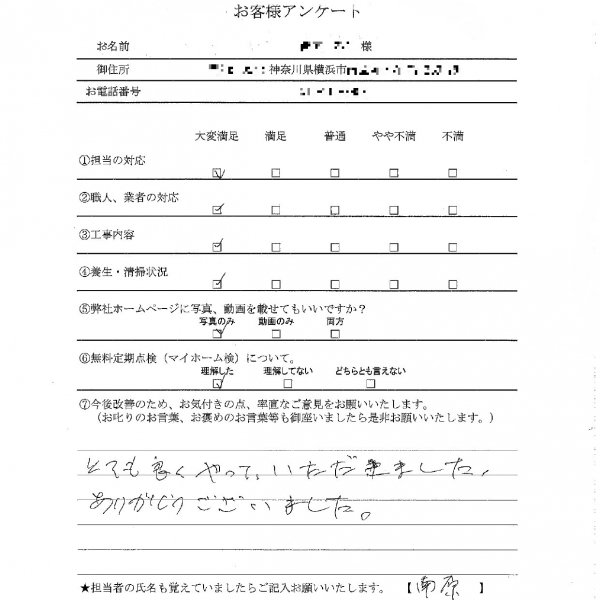 お客様アンケート
お名前 様
御住所 神奈川県横浜市
お電話番号
大変満足 満足 普通 やや不満 不満
①担当の対応 ☑ □ □ □ □
②職人、業者の対応 ☑ □ □ □ □
③工事内容 ☑ □ □ □ □
④養生・清掃状況 ☑ □ □ □ □
⑤弊社ホームページに写真、動画を載せてもいいですか？
写真のみ 動画のみ 両方
☑ □ □
⑥無料定期点検（マイホーム検）について。
理解した 理解してない どちらとも言えない
☑ □ □
⑦今後改善のため、お気付きの点、率直なご意見をお願いいたします。
（お叱りのお言葉、お褒めのお言葉等も御座いましたら是非お願いいたします。）
とても良くやって、いただきました、
ありがとうございました。
★担当者の氏名も覚えていましたらご記入お願いいたします。 【南原】